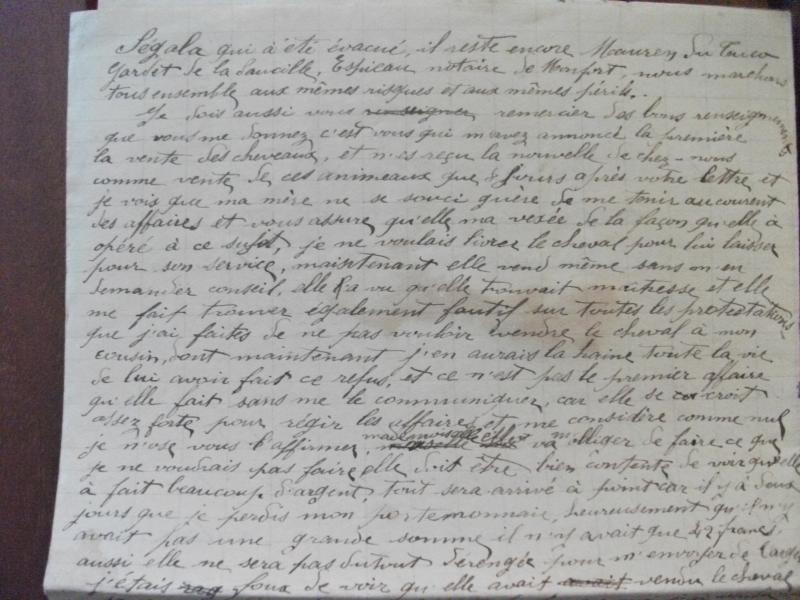 Ségala qui à été évacué, il reste encore Mauren du Touco
Gardet de la Saucille, Espieau notaire de Monfort, nous marchons
tous ensemble aux mêmes risques et aux mêmes périls..
Je dois aussi vous renseigner remercier des bons renseignements
que vous me donnez c'est vous qui m'avez annoncé la première
la vente des chevaux, et n'es reçu la nouvelle de chez-nous
comme vente de ces animeaux que 8 jours après votre lettre et
je vois que ma mère ne se souci guère de me tenir au courent
des affaires et vous assure qu'elle ma vexée de la façon qu'elle à
opéré à ce sujet, je ne voulais livrer le cheval pour lui laisser
pour son service, maintenant elle vend même sans m'en
demander conseil, elle l'a vu qu'elle trouvait maitresse et elle
me fait trouver également fautif sur toutes les protestations
que j'ai faites de ne pas vouloir vendre le cheval à mon
cousin, dont maintenant j'en aurais la haine toute la vie
de lui avoir fait ce refus, et ce n'est pas le premier affaire
qu'elle fait sans me le communiquer, car elle se croit
assez forte pour régir les affaires et me considère comme nul
je n'ose vous l'affirmer, mademoiselle elle va m'obliger de faire ce que
je ne voudrais pas faire elle doit être bien contente de voir qu'elle
à fait beaucoup d'argent, tout sera arrivé à point car il y à deux
jours que je perdis mon portemonnaie, heureusement qu'il n'y
avait pas une grande somme il n'y avait que 42 francs
aussi elle ne sera pas dutout dérengée pour m'envoyer de l'argent
j'étais foux de voir qu'elle avait avait vendu le cheval